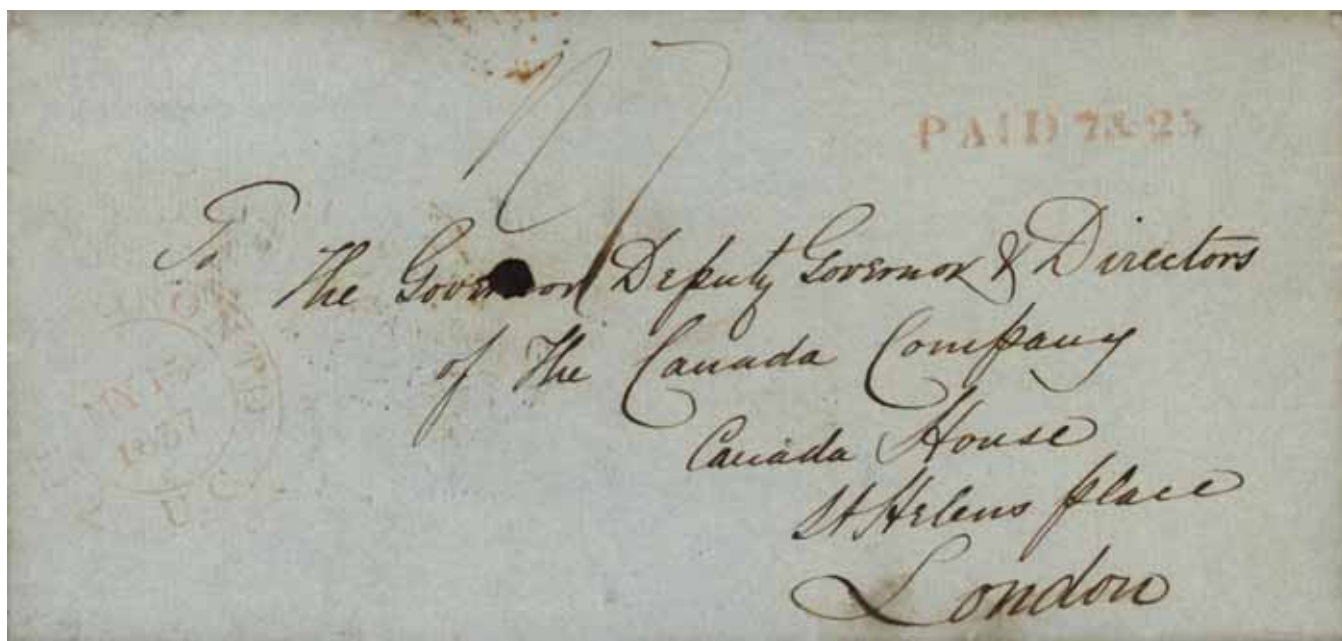 PAID 7 & 25
To
The Governor Deputy Governor & Directors
of The Canada Company
Canada House
St Helens place
London
1837
U.C.